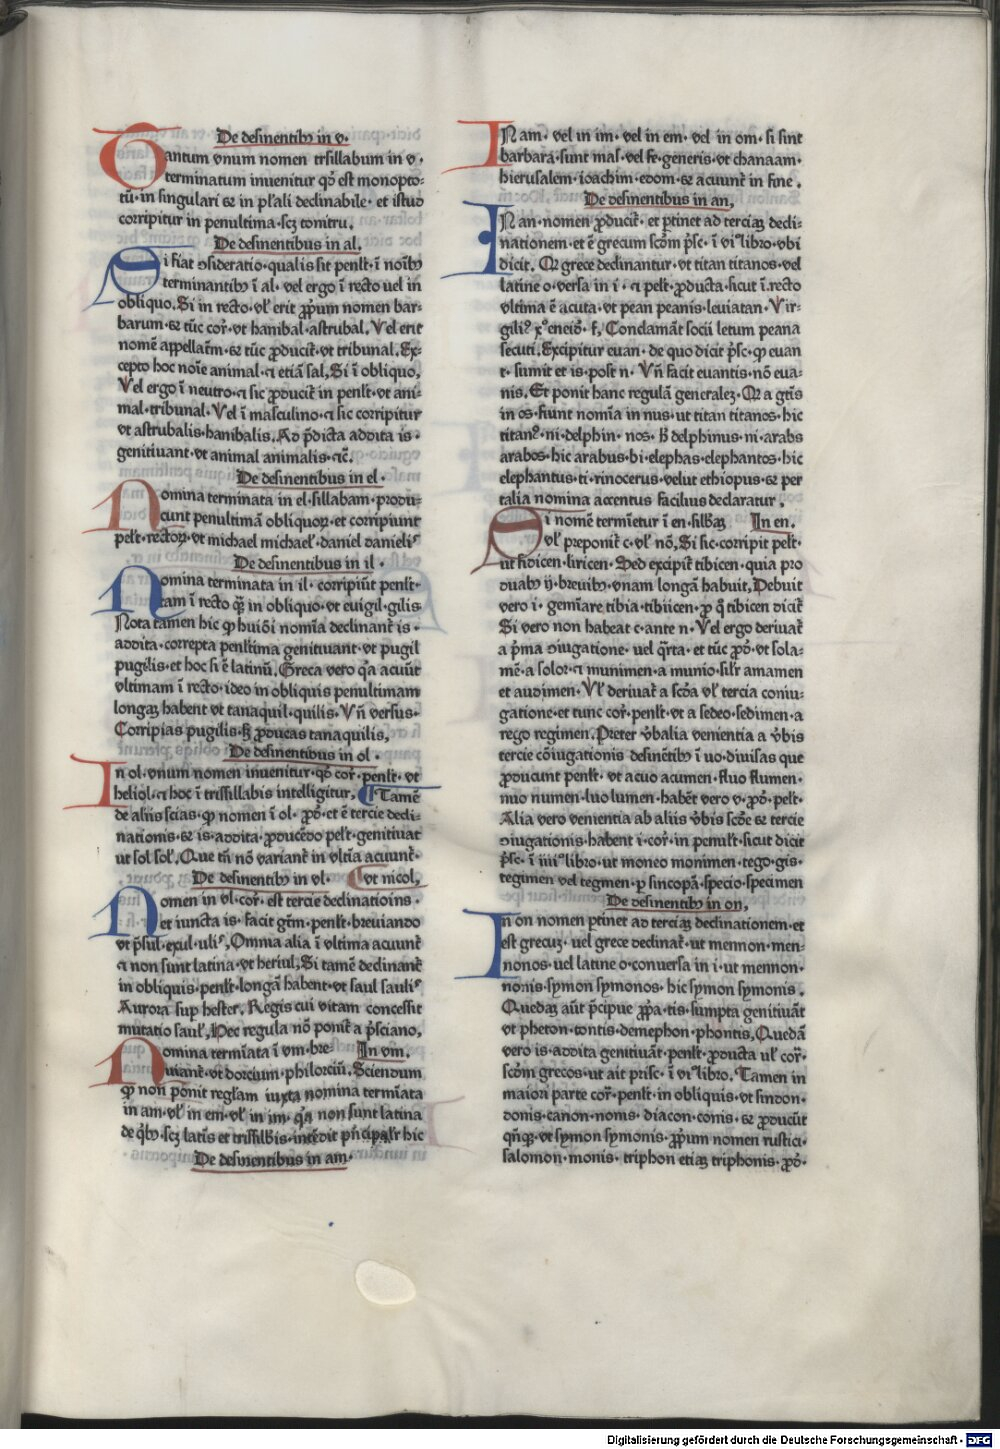 De desinentibꝫ in v·
Tantum vnum nomen trsillabum in v·
terminatum inuenitur qḋ est monopto⸗
tū·in singulari ⁊ in pl'ali declinabile·et istud
corripitur in penultima·scꝫ tonitru.
De desinentibus in al.
Si fiat ↄsideratio·qualis sit penl't·ī noībꝫ
terminantibꝫ ī al·vel ergo ī recto uel in
obliquo. Si in recto·vl' erit ꝓpum nomen bar⸗
barum·⁊ tūc cor̄·vt hanibal·astrubal. Vel erit
nomē appellatm̄·⁊ tūc ꝓducit·vt tribunal. Ex⸗
cepto hoc noīe animal·⁊ etiā sal, Si ī obliquo,
Vel ergo ī neutro·⁊ sic ꝓducit in penl't·vt ani⸗
mal·tribunal·Vel ī masculino·⁊ sic corripitur
vt astrubalis·hanibalis. Ad p̄dicta addita is·
genitiuant·vt animal animalis·⁊c̄.
De desinentibus in el·
Nomina terminata in el·sillabam·produ⸗
cunt penultimā obliquoꝝ·et corripiunt
pel't·rectoꝝ·vt michael michael'·daniel danieliˢ
De desinentibus in il·
Nomina terminata in il·corripiūt penl't·
tam ī recto qꝫ̄ in obliquo·vt euigil·gilis
Nota tamen hic ꝙ huiōi nomīa declinant is·
addita·correpta penl'tima genitiuant·vt pugil
pugilis·et hoc si ē latinū. Greca vero qᵃ acuūt
vltimam ī recto·ideo in obliquis penultimam
longaꝫ habent vt tanaquil·quilis·Vn̄ versus·
Corripias pugilis·sꝫ ꝓducas tanaquilis,
De desinentibus in ol·
In ol·vnum nomen inuenitur·qḋ cor̄·penl't·vt
heliol·⁊ hoc ī trissillabis intelligitur, ¶ Tamē
de aliis scias·ꝙ nomen ī ol·ꝓḋ·et ē tercie decli⸗
nationis·⁊ is·addita·ꝓducēdo pel't·genitiuat
ut sol sol'. Que tn̄ nō variant in vltīa acuunt·
De desinentibꝫ in vl· ¶ vt nicol,
Nomen in vl·cor̄·est tercie declinatioins·
et iuncta is·facit gtm̄·penl't·breuiando
vt p̄sul·exul·uliˢ, Omnia alia ī vltima acuunt
⁊ non sunt latina·vt heriul, Si tamē declinant
in obliquis·penl't·longā habent·vt saul sauliˢ
Aurora sup hester. Regis cui vitam concessit
mutatio saul', Nec regula nō ponit a p̄sciano,
Nomina termīata ī vm·bre⸗ In vm.
uiant·vt dorcium·philorciū. Sciendum
ꝙ non ponit regl'am iuxta nomina termīata
in am·vl' in em·vl' in im·qᵃ non sunt latina
de qⁱbꝫ·scꝫ latīs et trissilbis·intēdit pn̄cipal'r hic
De desinentibus in am·
IN am·vel in im·vel in em·vel in om·si sint
barbara·sunt mas'·vel fe·generis·vt chanaam·
hierusalem·ioachim·edom·⁊ acuunt in fine.
De desinentibus in an,
IN an·nomen ꝓducit·et ptinet ad terciaꝫ decli⸗
nationem·et ē grecum scdm p̄sc·ī viº libro·vbi
dicit. Qꝛ grece declinantur·vt titan titanos·vel
latine o·versa in i·⁊ pelt·ꝓducta·sicut ī.recto
vltima ē acuta·vt pean peanis·leuiatan·Vir⸗
giliꝰ xº eneid̄·f, Condamāt socii letum peana
secuti. Excipitur euan·de quo dicit p̄sc·ꝙ euan
t·sumit et is·post n·Vn̄ facit euantis·nō eua⸗
nis. Et ponit hanc regulā generaleꝫ·Qꝛ a gtīs
in os·fiunt nomīa in nus·ut titan titanos·hic
titanꝰ·ni·delphin·nos·ƀ delphinus·ni·arabs
arabos·hic arabus·bi·elephas·elephantos·hic
elephantus·ti·rinocerus·velut ethiopus·⁊ per
talia nomina accentus facilius declaratur.
Si nomē termīetur ī en·silbaꝫ In en.
vl' preponit c·vl' nō, Si sic·corripit pel't·
ut fidicen·liricen·Sed excipit tibicen·quia pro
duabꝫ ij·breuibꝫ·vnam longā habuit, Debuit
vero i·gemīare tibia·tibiicen·ꝓ q̄ tibicen dicit
Si vero non habeat c·ante n·Vel ergo deriuat
a p̄ma ↄiugatione·uel qᵃrta·et tūc ꝓḋ·vt sola⸗
mē·a solor·⁊ munimen·a munio·sil'r amamen
et audimen·Vl' deriuat a scd̄a vl' tercia coniu⸗
gatione·et tunc cor̄·penl't·vt a sedeo·sedimen·a
rego regimen. Preter v̄balia venientia a v̄bis
tercie cōiugationis desinētibꝫ ī uo·diuisas que
ꝓducunt penl't·vt acuo acumen·fluo flumen·
nuo numen·luo lumen·habēt vero v·ꝓḋ·pel't·
Alia vero venientia ab aliis v̄bis scd̄e ⁊ tercie
ↄiugationis·habent i·cor̄·in penult·sicut dicit
p̄sc·ī iiiiº libro·ut moneo monimen·tego·gis·
tegimen vel tegmen·p sincopā·specio·specimen
De desinentibꝫ in on,
In on nomen ptinet ad terciaꝫ declinationem·et
est grecuꝫ·uel grece declinat·ut mennon·men⸗
nonos·uel latine o·conuersa in i·ut mennon·
nonis·symon symonos·hic symon symonis.
Quedaꝫ aūt p̄cipue ꝓpa·tis·sumpta genitiuāt
vt pheton·tontis·demephon·phontis, Quedā
vero is·addita genitiuāt·penl't·ꝓducta ul' cor̄·
scd̄m grecos·ut ait prisc·ī viº libro. Tamen in
maiori parte cor̄·penl't·in obliquis·vt sindon·
donis·canon·nonis·diacon·conis·⁊ ꝓducūt
qn̄qꝫ·vt symon symonis·ꝓpum nomen rustici·
salomon·monis·triphon etiaꝫ triphonis·ꝓḋ·
Digitalisierung gefördert durch die Deutsche Forschungsgemeinschaft · DFG